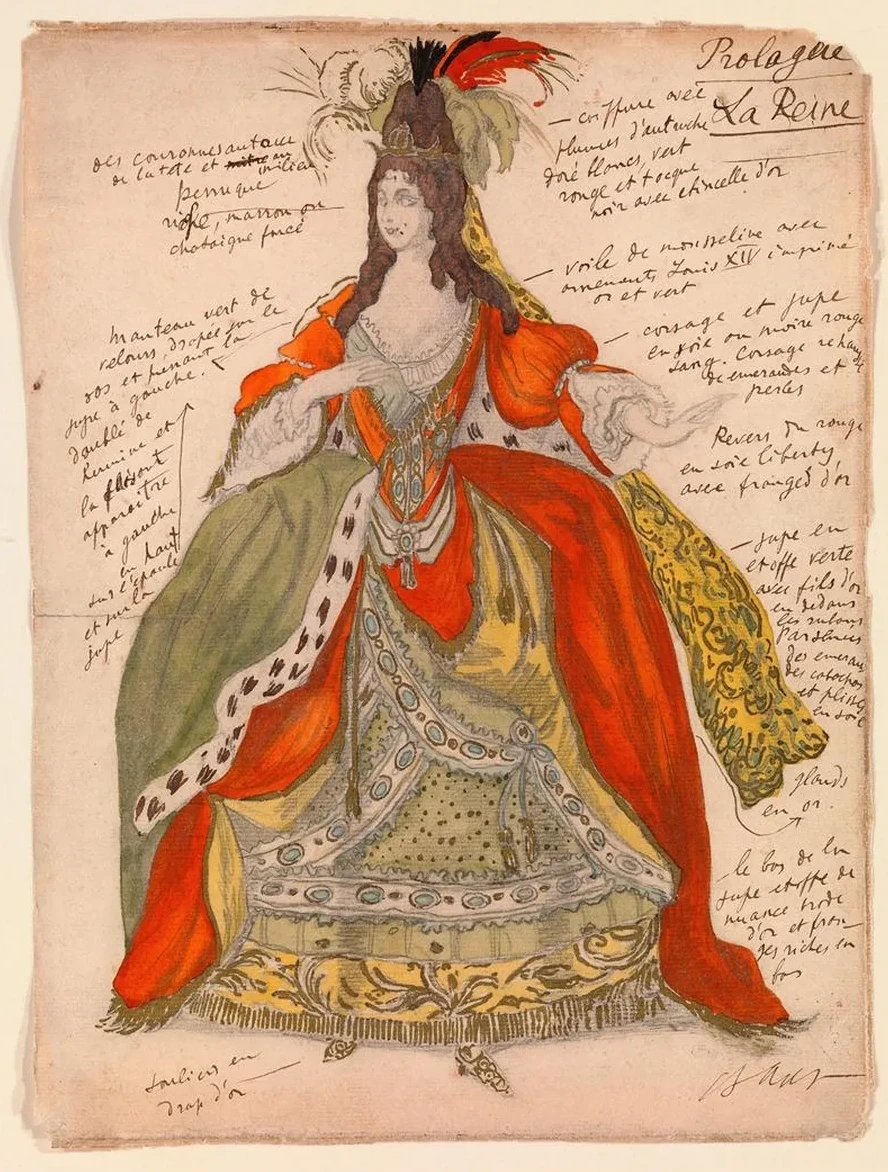 Prologue
La Reine
des couronnes autour
de la tête et mitre au milieu
perruque
riche, marron ou
chataigne foncé
— coiffure avec
plumes d'autruche
doré blancs, vert
rouge et tocque
noir avec etincelle d'or
— voile de mousseline avec
ornements Louis XIV imprimé
or et vert
manteau vert de
velours, drapée sur le
dos et prenant la
jupe à gauche.
doublé de
hermine et
la faisant
apparaître
à gauche
en haut
sur l'épaule
et sur la
jupe
— corsage et jupe
en soie ou moire rouge
sang. Corsage
de emeraudes et
perles
Revers du rouge
en soie liberty
avec franges d'or
— jupe en
etoffe verte
avec fils d'or
en dedans
les rubans
des
et plissé
en soie
glands
en or.
— le bas de la
jupe etoffe de
nuance
d'or et fran-
ges riches en
bas
souliers en
drap d'or
Bakst